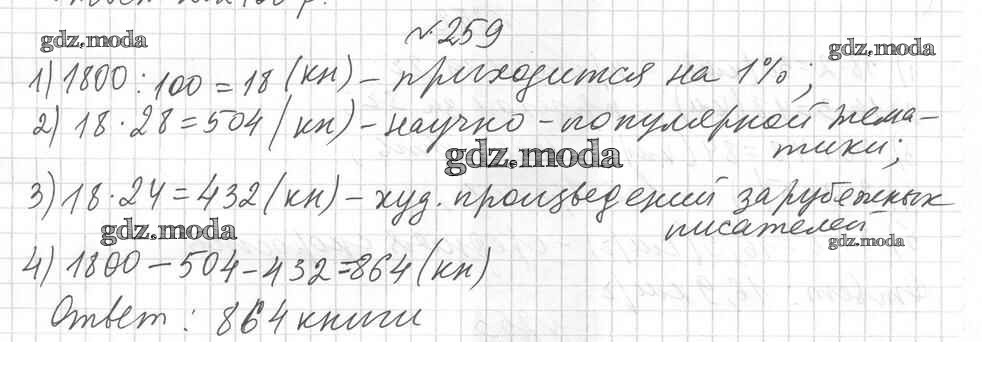 №259
gdz.moda
gdz.moda
1) 1800 : 100 = 18 (кн) – приходится на 1%;
2) 18 · 28 = 504 (кн) – научно – популярной тема-
тики;
gdz.moda
3) 18 · 24 = 432 (кн) – худ. произведений зарубежных
писателей
gdz.moda
gdz.moda
4) 1800 – 504 – 432 = 864 (кн)
Ответ : 864 книги